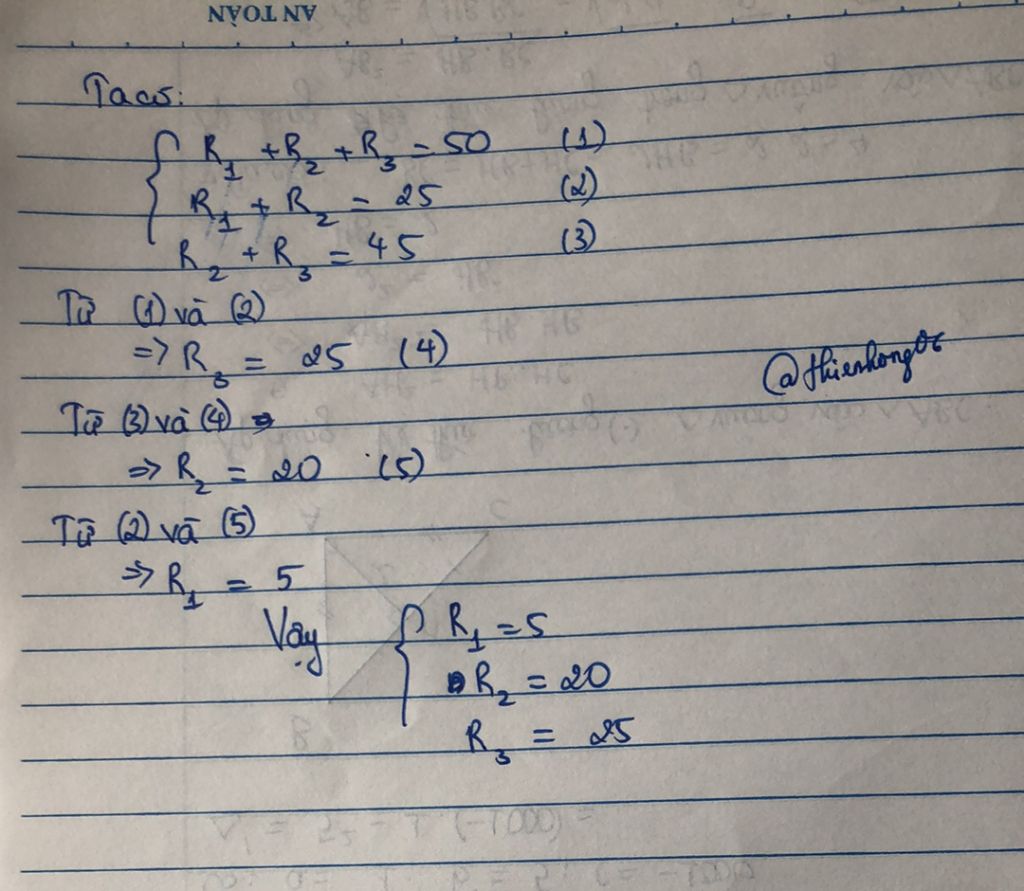 AN TOÀN
Ta có:
R1 + R2 + R3 = 50 (1)
R1 + R2 = 25 (2)
R2 + R3 = 45 (3)
Từ (1) và (2)
=> R3 = 25 (4)
@thienhong06
Từ (3) và (4)
=> R2 = 20 (5)
Từ (2) và (5)
=> R1 = 5
Vậy { R1 = 5
R2 = 20
R3 = 25